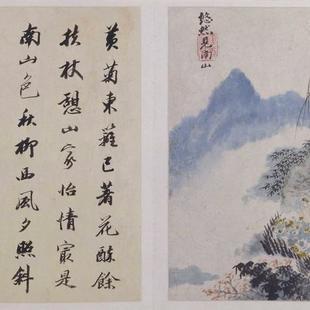 悠然見南山
黃菊東籬已著花醉餘
扶杖憩山家怡情寂是
南山色秋柳西風夕照斜